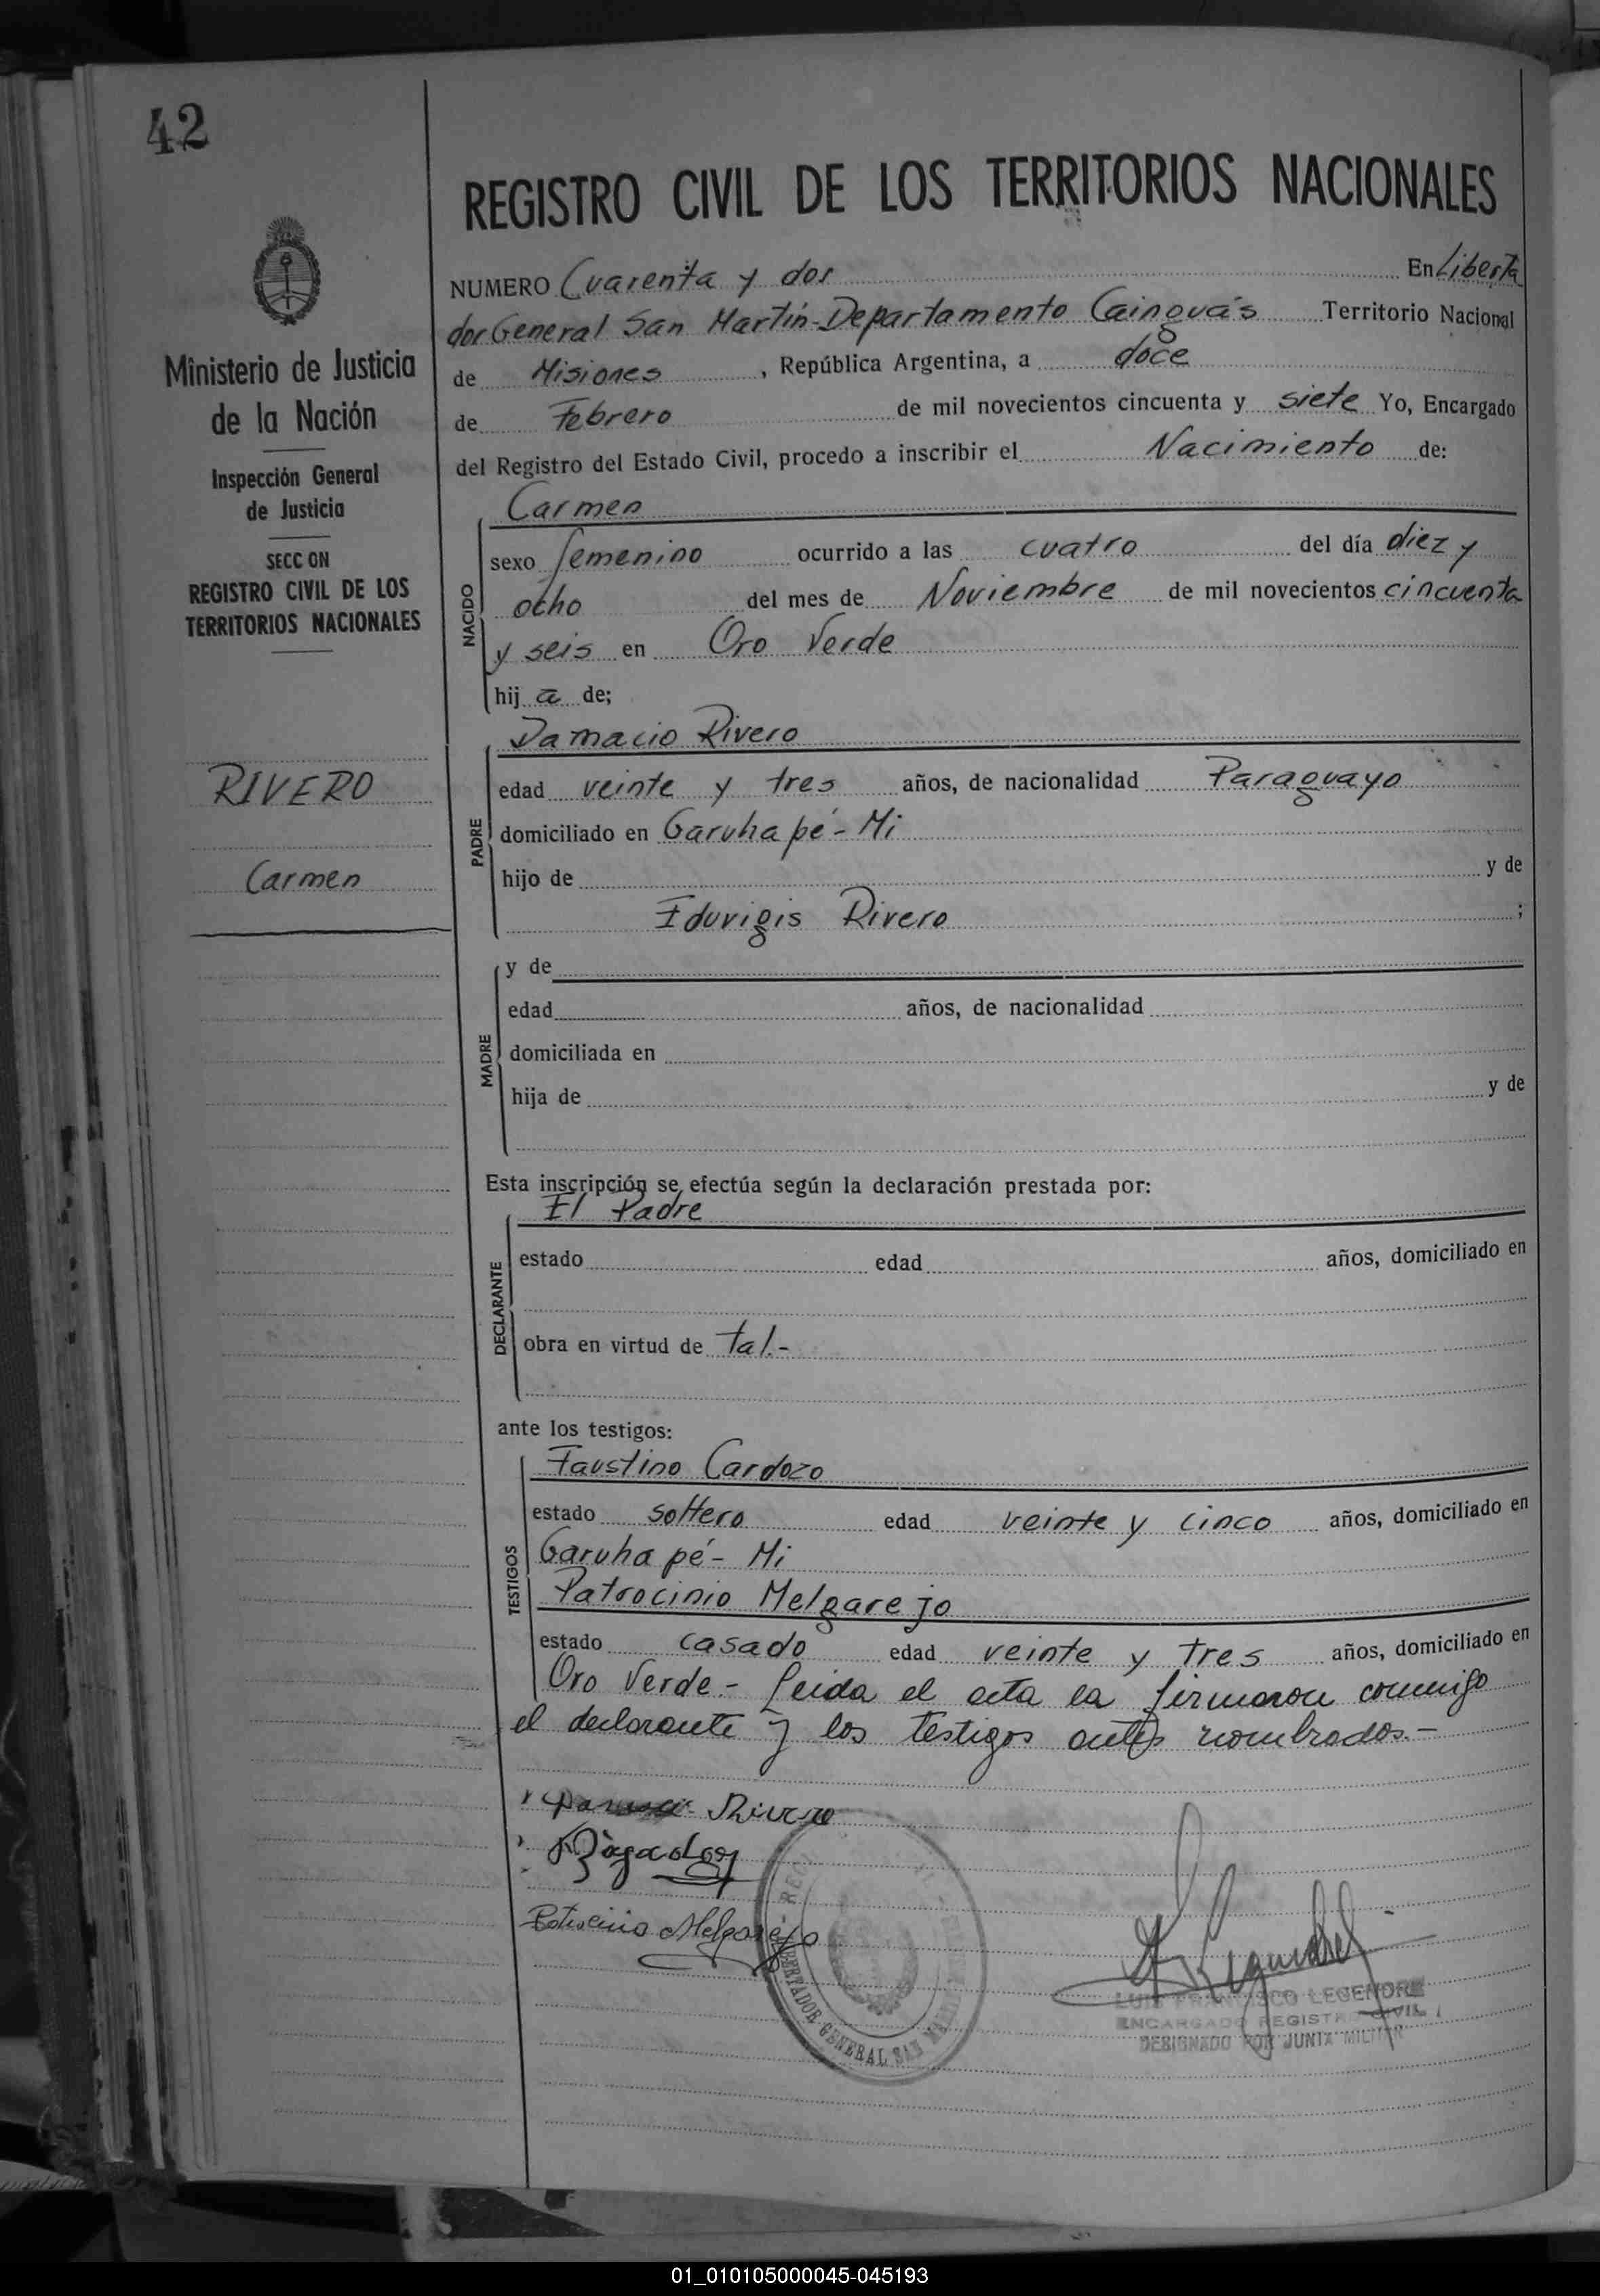 42
REGISTRO CIVIL DE LOS TERRITORIOS NACIONALES
NUMERO Cuarenta y dos En Liberta
dor General San Martín-Departamento Cainguás Territorio Nacional
de Misiones, República Argentina, a doce
de Febrero de mil novecientos cincuenta y siete Yo, Encargado
del Registro del Estado Civil, procedo a inscribir el Nacimiento de:
Ministerio de Justicia
de la Nación
Inspección General
de Justicia
SECC ON
REGISTRO CIVIL DE LOS
TERRITORIOS NACIONALES
RIVERO
Carmen
NACIDO
Carmen
sexo femenino ocurrido a las cuatro del día diez y
ocho del mes de Noviembre de mil novecientos cincuenta
y seis en Oro Verde
hij a de;
PADRE
Damacio Rivero
edad veinte y tres años, de nacionalidad Paraguayo
domiciliado en Garuhapé-Mi
hijo de y de
Eduvigis Rivero ;
MADRE
y de
edad años, de nacionalidad
domiciliada en
hija de y de
Esta inscripción se efectúa según la declaración prestada por:
DECLARANTE
El Padre
estado edad años, domiciliado en
obra en virtud de tal.-
ante los testigos:
TESTIGOS
Faustino Cardozo
estado soltero edad veinte y cinco años, domiciliado en
Garuhapé-Mi
Patrocinio Melgarejo
estado casado edad veinte y tres años, domiciliado en
Oro Verde.- Leida el acta la firmaron conmigo
el declarante y los testigos antes nombrados.-
Rivero
Patrocinio Melgarejo
LIBERTADOR GENERAL SAN MARTIN
LUIS FRANCISCO LEGENDRE
ENCARGADO REGISTRO CIVIL
DESIGNADO POR JUNTA MILITAR
01_010105000045-045193